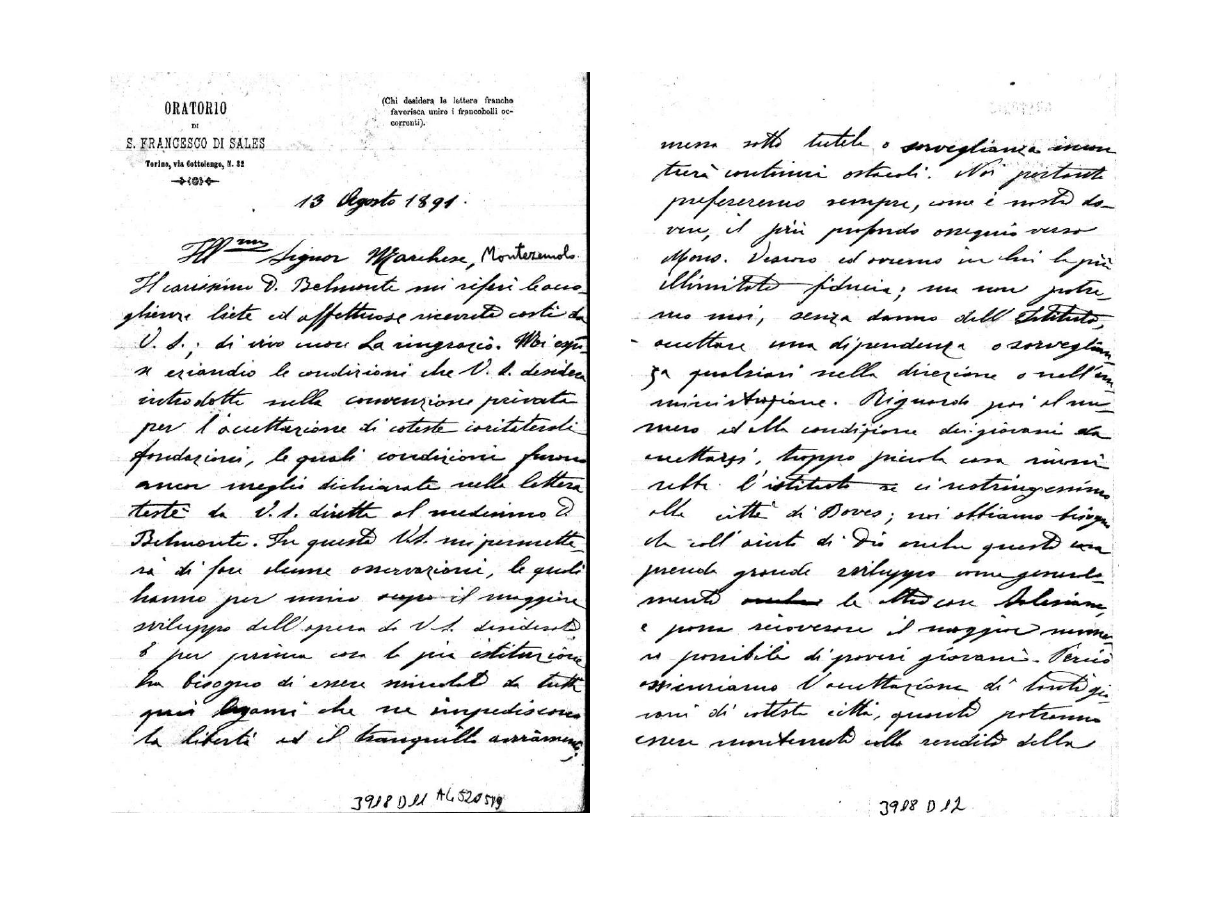 ORATORIO
DI
S. FRANCESCO DI SALES
Torino, via Cottolengo, N. 32
(Chi desidera le lettere franche
favorisca unire i francobolli oc-
correnti).
13 Agosto 1891.
Ill.mo Signor Marchese, Montezemolo.
Il carissimo D. Belmonte mi riferì le acco-
glienze liete ed affettuose ricevute costì da
V. S.; di vivo cuore La ringrazio. Mi espo-
se eziandio le condizioni che V. S. desidera
introdotte nella convenzione privata
per l'accettazione di coteste caritatevoli
fondazioni, le quali condizioni furono
ancor meglio dichiarate nella lettera
testè da V. S. diretta al medesimo D.
Belmonte. In questo V.S. mi permette-
rà di fare alcune osservazioni, le quali
hanno per unico scopo il maggiore
sviluppo dell'opera da V. S. desiderato
È per prima cosa la pia istituzione
ha bisogno di essere svincolata da tutti
quei legami che ne impediscono
la libertà ed il tranquillo
3918 D 11 AG 520519
messa sotto tutela o sorveglianza incon
trerà continui ostacoli. Noi pertanto
professeremo sempre, come è nostro do-
vere, il più profondo ossequio verso
Mons. Vescovo ed avremo in lui la più
illimitata fiducia; ma non potre-
mo noi, senza danno dell'Istituto,
accettare una dipendenza o sorveglian
za qualsiasi nella direzione o nell'am
ministrazione. Riguardo poi al nu-
mero ed alla condizione dei giovani da
accettarsi, troppo piccola cosa riusci
rebbe l'istituto se ci restringessimo
alla città di Boves; noi abbiamo bisogno
che coll'aiuto di Dio anche questa casa
prenda grande sviluppo come general-
mente le altre case Salesiane
e possa ricoverare il maggior nume
ro possibile di poveri giovani. Perciò
assicuriamo l'accettazione di tanti gio
vani di cotesta città, quanti potranno
essere mantenuti colle rendite della
3918 D 12